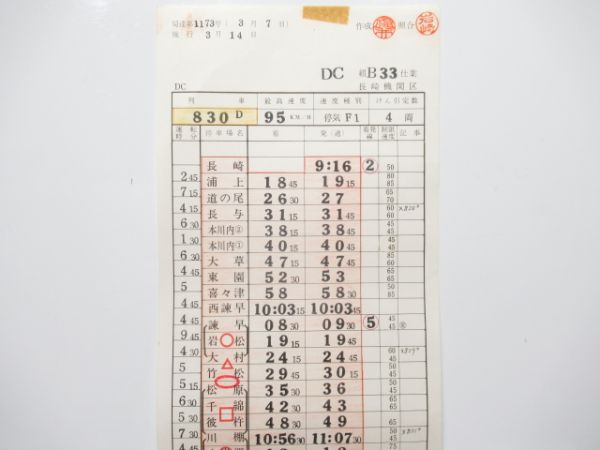 関達第1173号(3月7日)
施行 3月14日
作成 照合 岩崎
DC 組B33仕業
DC 長崎機関区
列車 最高速度 速度種別 けん引定数
830D 95KM/H 停気F1 4両
運転時分 停車場名 着 発(通) 着発線 制限速度 記事
長崎 9:16 ② 50
2 45 浦上 18 45 19 15 80 85
7 15 道の尾 26 30 27 65 70
4 15 長与 31 15 31 45 60 60
6 30 本川内② 38 15 38 45 45
1 30 本川内① 40 15 40 45 45 45
6 30 大草 47 15 47 45
4 45 東園 52 30 53 65
5 喜々津 58 58 30 50 85
4 45 西諫早 10:03 15 10:03 45
4 45 諫早 08 30 09 30 ⑤ 45 45
9 45 岩松 19 15 19 45
4 30 大村 24 15 24 45 60
5 竹松 29 45 30 15
5 15 松原 35 30 36
6 30 千綿 42 30 43
5 30 彼杵 48 30 49
7 30 川棚 10:56 30 11:07 30